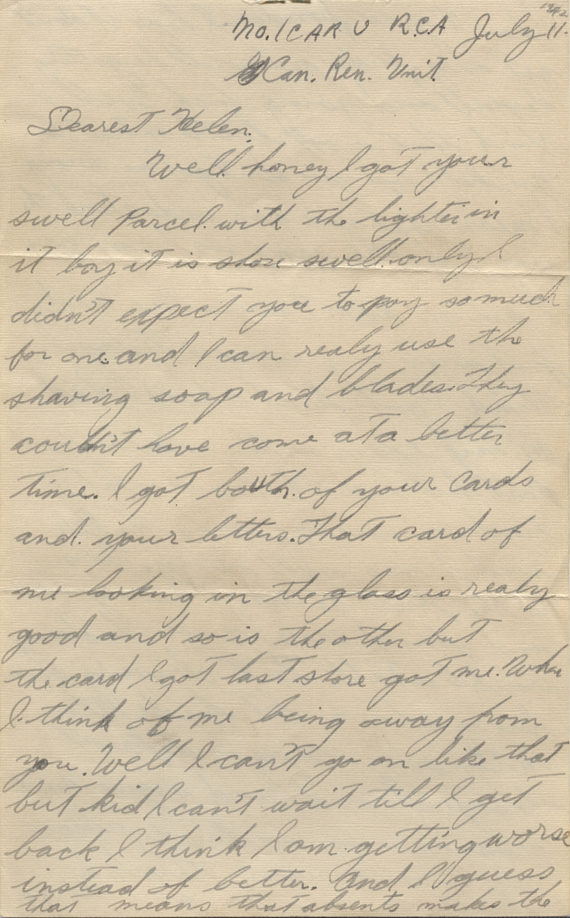 1942
No. 1 CARU R.C.A July 11.
Can. Ren. Unit
Dearest Helen.
Well honey I got your
swell Parcel. with the lighter in
it boy it is shore swell. only I
didn't expect you to pay so much
for one. and I can realy use the
shaving soap and blades. They
couldn't have come at a better
time. I got bouth. of your Cards
and. your letters. That card of
me looking in the glass is realy
good and so is the other but
the card I got last shore got me. When
I think of me being away from
you. Well I can't go on like that
but kid I can't wait till I get
back I think I am getting worse
instead of better. And I guess
that means that absents makes the